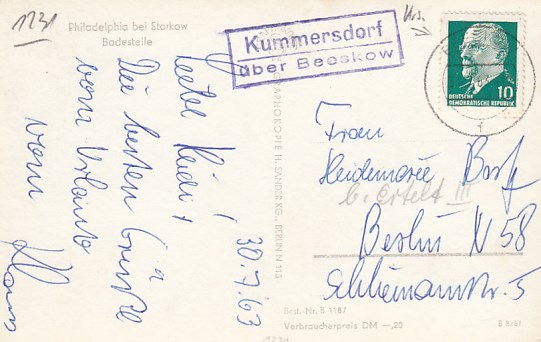 1231
Philadelphia bei Storkow
Badestelle
Kummersdorf
über Beeskow
10
DEUTSCHE
DEMOKRATISCHE REPUBLIK
30.7.63
Liebe Heidi!
Die besten Grüße
vom Urlaub
vom
Klaus
Frau
Heidemarie
b. Ertelt III
Berlin N 58
Schliemannstr. 5
H. SANDER KG., BERLIN N 113
Best. Nr. B 1187
Verbraucherpreis DM -,20
B 8/61